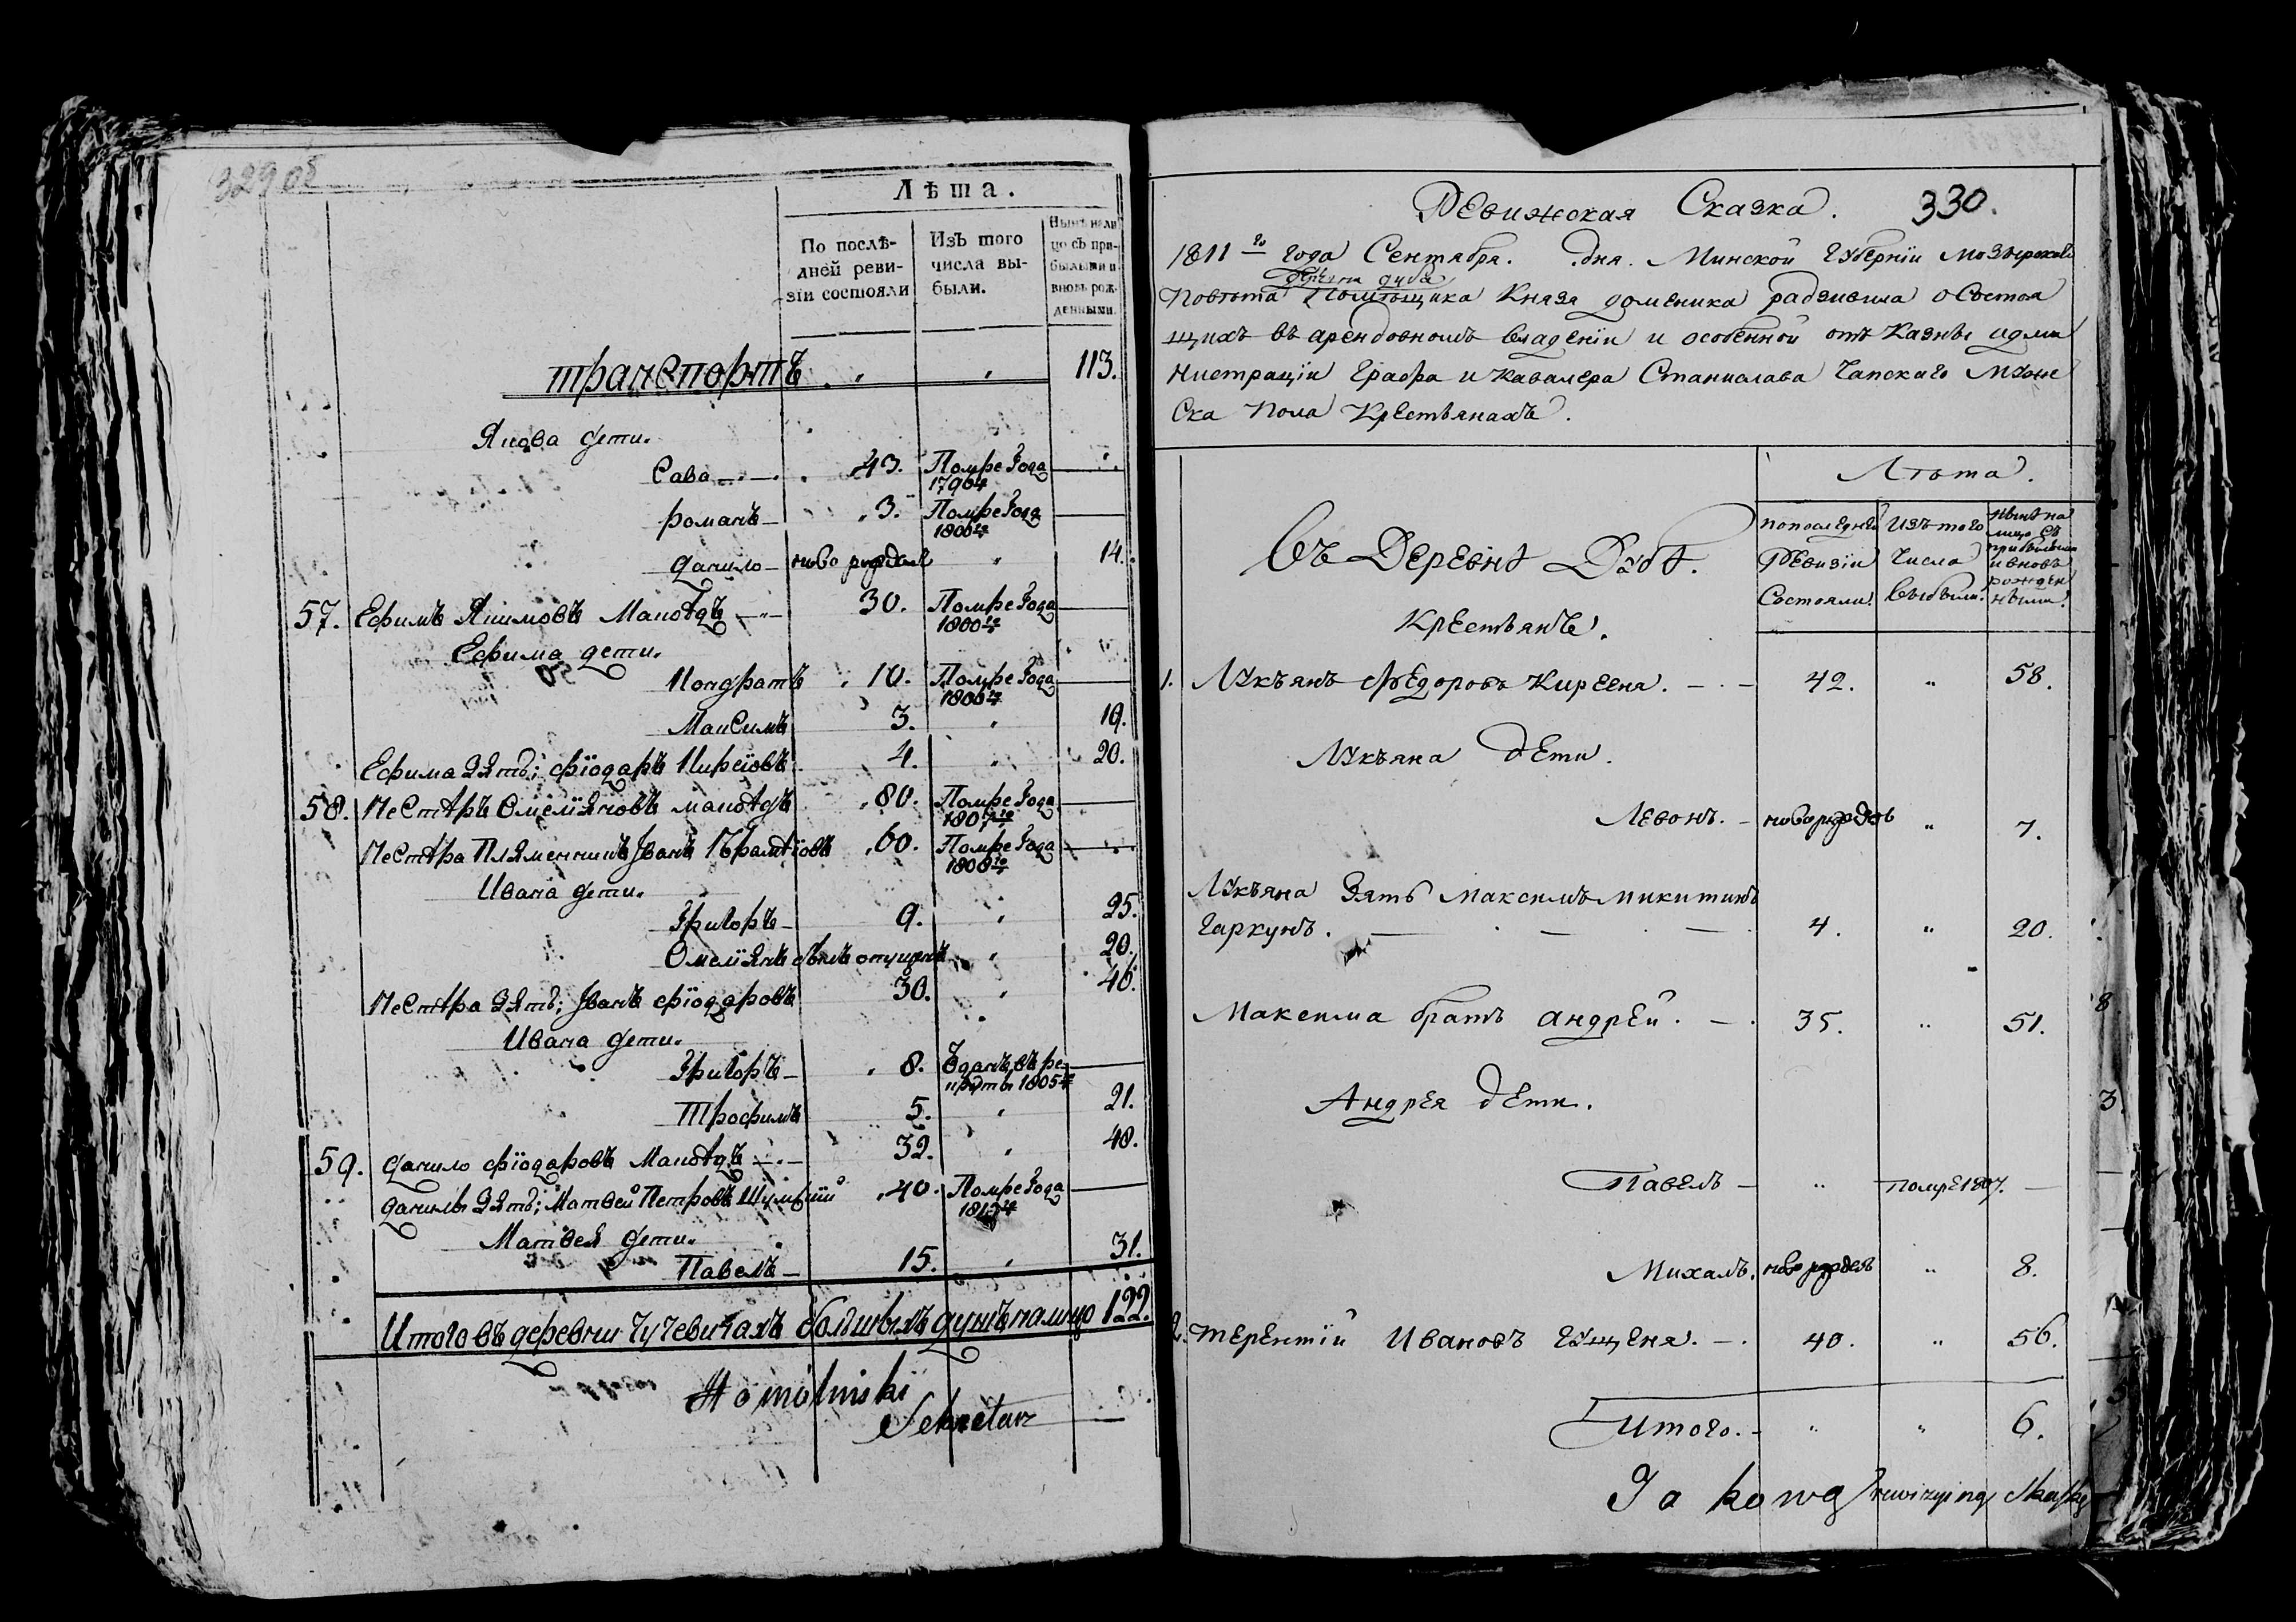 329 об
Лѣта.
По послѣдней ревизіи состояли
Изъ того числа выбыли.
Нынѣ на лицо съ прибылыми и вновь рожденными.
транспортъ . . 113.
дети.
Сава — 43. Помре Года 1796
романъ — 3. Помре Года 1800го
данило — ново рожден 14.
57. Ефимъ Якимовъ — 30. Помре Года 1800го
Ефима дети.
Кондратъ 10. Помре Года 1800го
Максимъ 3. 19.
Ефима Зять; фіодаръ Кирѣіовъ 4. 20.
58. Нестѣръ Омеліяновъ 80. Помре Года 1807го
Нестѣра Пляменникъ Іванъ 60. Помре Года 1808го
Ивана дети.
Григоръ — 9. 25.
Омеліянъ былъ опущенъ 20.
Нестѣра Зять; Іванъ фіодаровъ 30. 46.
Ивана дети.
Григоръ — 8. Зданъ въ рекруты 1805го
Трофимъ 5. 21.
59. данило фіодаровъ — 32. 48.
данилы Зять; Матвей Петровъ 40. Помре Года
Матвея дети.
Павелъ — 15. 31.
Итого въ деревни Чучевичахъ большыхъ душъ налицо 122.
Homolinski
Sekretarz
Ревижская Сказка. 330.
1811го года Сентября. дня. Минской Губерніи Мозырскаго
деревня дуба
Повѣта Помѣщика Князя доменика радзивила о Состоя
щихъ въ арендовномъ владеніи и особенной отъ Казны адми
нистраціи Графа и Кавалера Станислава Чапскаго Муже
ска Пола Крестьянахъ.
Въ Деревнѣ Дубѣ.
Крестьянъ.
Лѣта.
По последней Ревизіи Состояли.
Изъ того Числа Выбыли.
Нынѣ на лицо съ прибылыми и вновь рожденными.
1. Лукьянъ Федоровъ Киреена. — 42. " 58.
Лукьяна дети.
Левонъ. — новорожден " 7.
Лукьяна Зять Максимъ Микитинъ
Гаркунъ. — 4. " 20.
Максима братъ андрей. — 35. " 51.
Андрея дети.
Павелъ — " Помре 1807. —
Михалъ. новорожденъ " 8.
2. Терентій Ивановъ Гущеня. — 40. " 56.
Итого. — " " 6.
Jakową rewizyiną skaskę